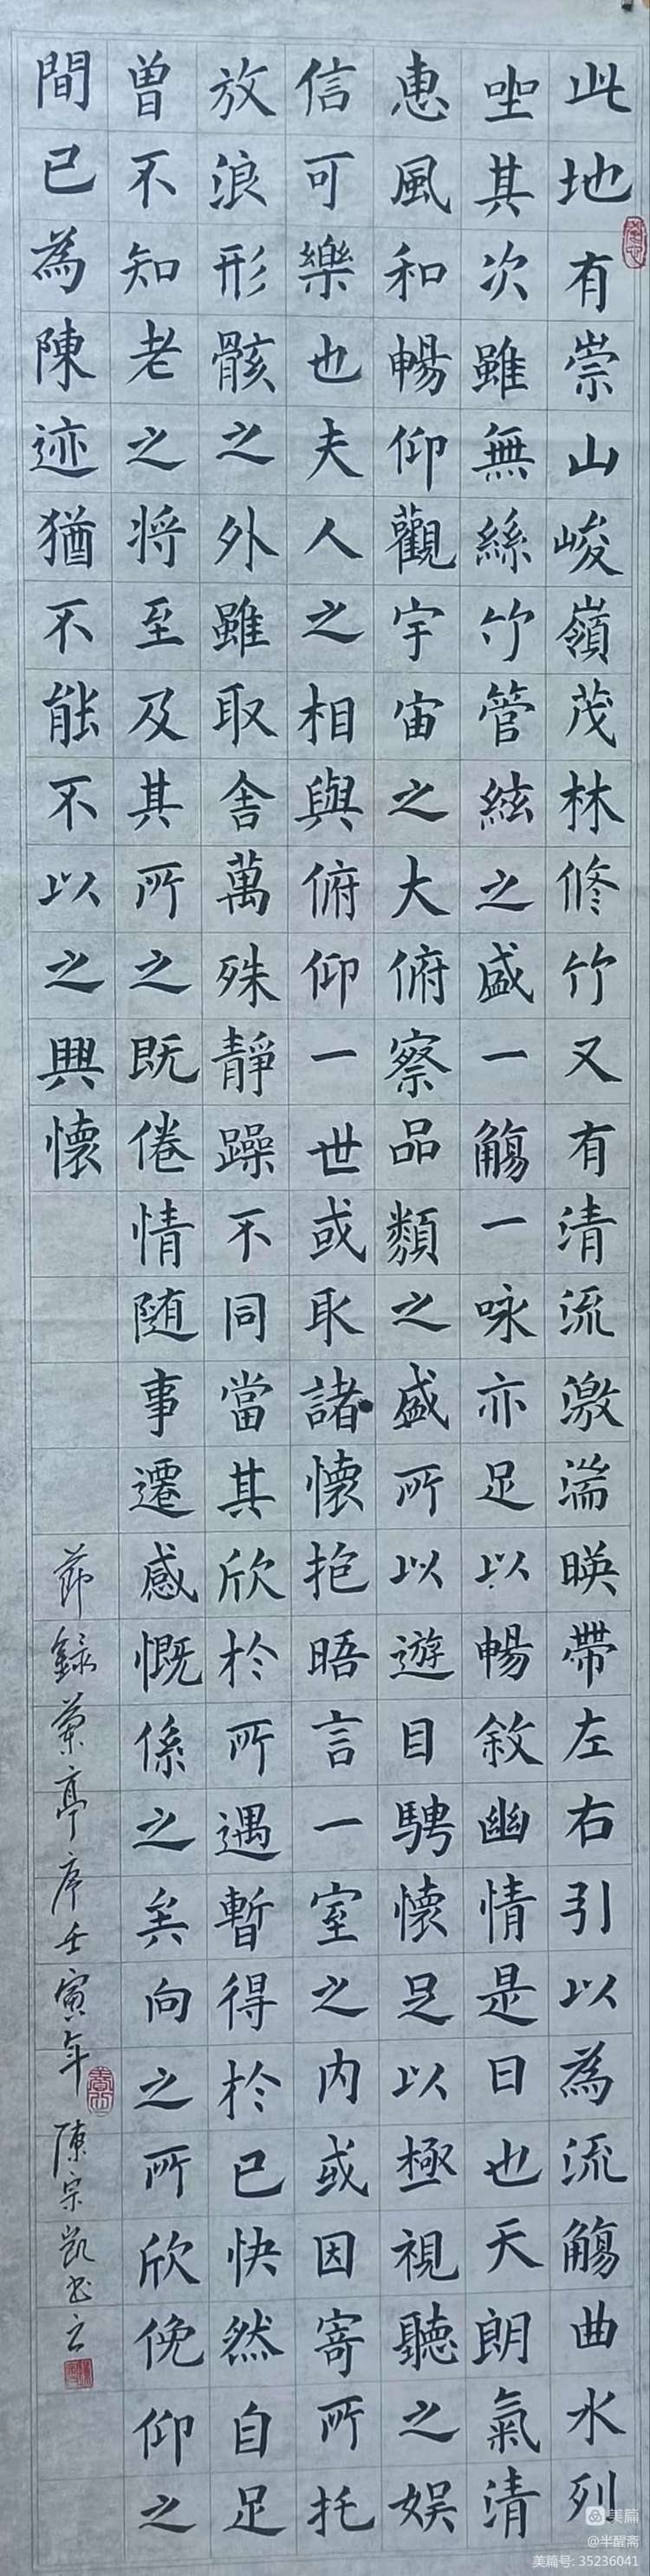 此地有崇山峻嶺茂林修竹又有清流激湍暎帶左右引以為流觴曲水列
坐其次雖無絲竹管絃之盛一觴一咏亦足以暢敘幽情是日也天朗氣清
惠風和暢仰觀宇宙之大俯察品類之盛所以遊目騁懷足以極視聽之娱
信可樂也夫人之相與俯仰一世或取諸懷抱晤言一室之内或因寄所托
放浪形骸之外雖取舍萬殊靜躁不同當其欣於所遇暫得於已快然自足
曽不知老之将至及其所之既倦情随事遷感慨係之矣向之所欣俛仰之
間已為陳迹猶不能不以之興懷
節錄蘭亭序壬寅年陳宗凯書之
美篇
@半醒斋
美篇号: 35236041